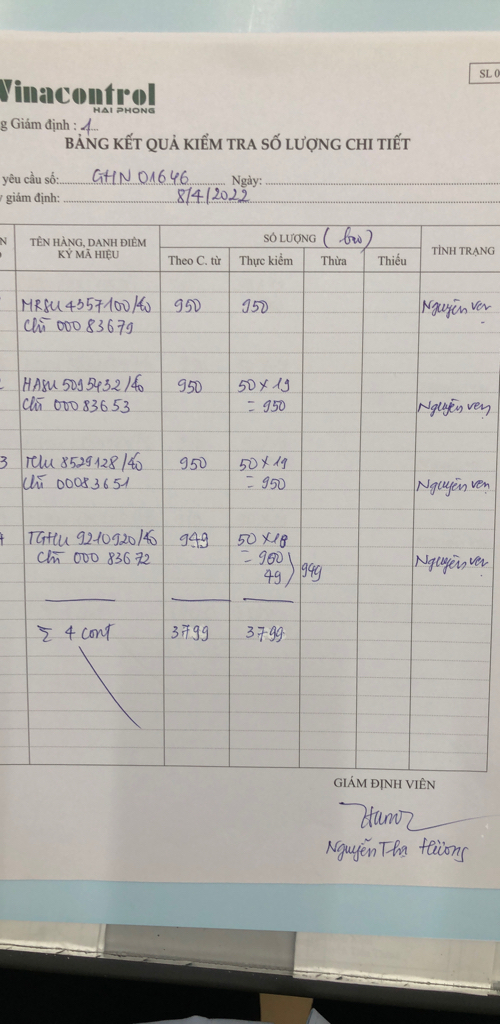 Vinacontrol
HAI PHONG
SL 0
g Giám định : 1
BẢNG KẾT QUẢ KIỂM TRA SỐ LƯỢNG CHI TIẾT
yêu cầu số: GHN 01646 Ngày:
giám định: 8/4/2022
TÊN HÀNG, DANH ĐIỂM KÝ MÃ HIỆU SỐ LƯỢNG (bao) TÌNH TRẠNG
Theo C. từ Thực kiểm Thừa Thiếu
MRSU 4557100/40 950 950 Nguyên vẹn
chì 000 83679
HASU 5095432/40 950 50 x 19
chì 000 83653 = 950 Nguyên vẹn
3 TCLU 8529128/40 950 50 x 19
chì 00083651 = 950 Nguyên vẹn
TGHU 9210920/40 949 50 x 18
chì 000 83672 = 900 Nguyên vẹn
49 949
Σ 4 cont 3799 3799
GIÁM ĐỊNH VIÊN
Nguyễn Thị Hường